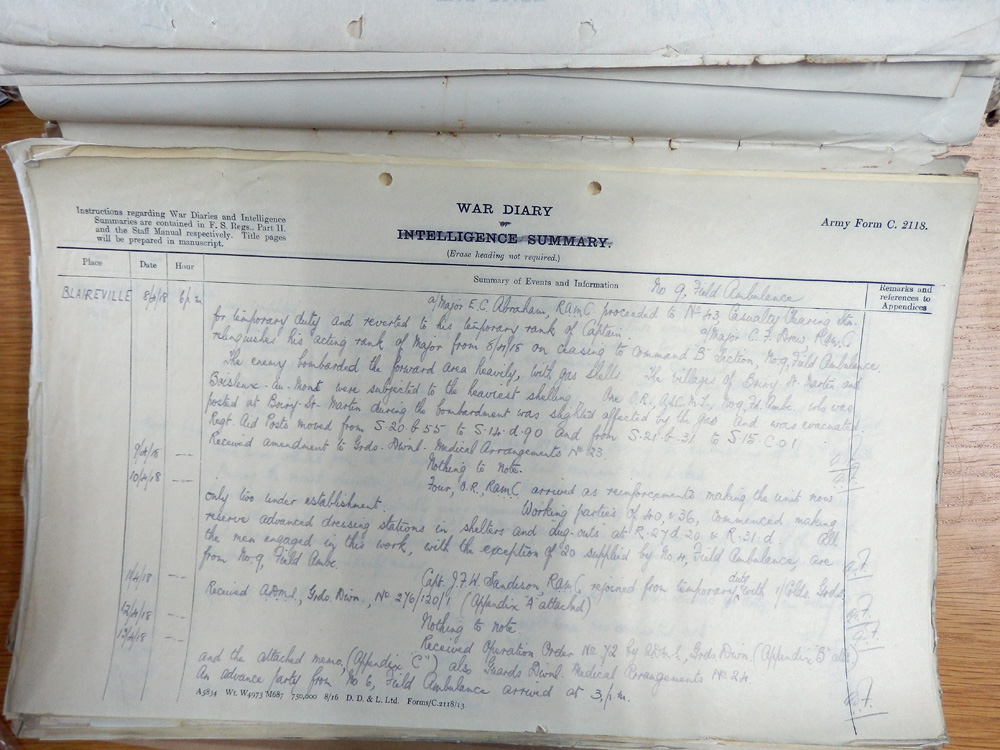 WAR DIARY
or
INTELLIGENCE SUMMARY.
(Erase heading not required.)
Army Form C. 2118.
Instructions regarding War Diaries and Intelligence
Summaries are contained in F. S. Regs., Part II.
and the Staff Manual respectively. Title pages
will be prepared in manuscript.
Place Date Hour Summary of Events and Information Remarks and references to Appendices
No 9. Field Ambulance
BLAIREVILLE 8/4/18 6p.m a/Major E.C. Abraham, RAMC proceeded to No 43 Casualty Clearing Stn.
for temporary duty and reverted to his temporary rank of Captain. a/Major C.F. Drew, RAMC
relinquishes his acting rank of Major from 8/4/18 on ceasing to command B Section, No 9, Field Ambulance.
The enemy bombarded the forward area heavily, with gas shells. The villages of Boiry St. Martin and
were subjected to the heaviest shelling. One O.R., No 9, Fd. Ambc. who was
posted at Boiry-St-Martin during the bombardment was slightly affected by the gas and was evacuated.
Regt. Aid Posts moved from S.20.b.55 to S.14.d.90 and from S.21.b.31 to S.15.C.01
Received amendment to Grds. Divnl. Medical Arrangements No 23.
9/4/18 Nothing to note.
10/4/18 Four, O.R., RAMC arrived as reinforcements making the unit now
only two under establishment. Working parties of 40, & 36, commenced making
reserve advanced dressing stations in shelters and dug-outs at R.27.d.20 & R.31.d. All
the men engaged in this work, with the exception of 20 supplied by No. 4, Field Ambulance, are
from No. 9, Field Ambc.
11/4/18 Capt. J.F.W. Sandison, RAMC rejoined from temporary duty with 1/Colds. Grds.
Received A.D.M.S., Grds. Divn., No 276/120/1 (Appendix "A" attached)
12/4/18 Nothing to note.
13/4/18 Received Operation Order No 72 by A.D.M.S., Grds. Divn. (Appendix "B"
and the attached memo, (Appendix "C") also Guards Divnl. Medical Arrangements No 24.
An advance party from No 6, Field Ambulance arrived at 3p.m.
A5834 Wt. W4973 M687 750,000 8/16 D. D. & L. Ltd. Forms/C.2118/13.